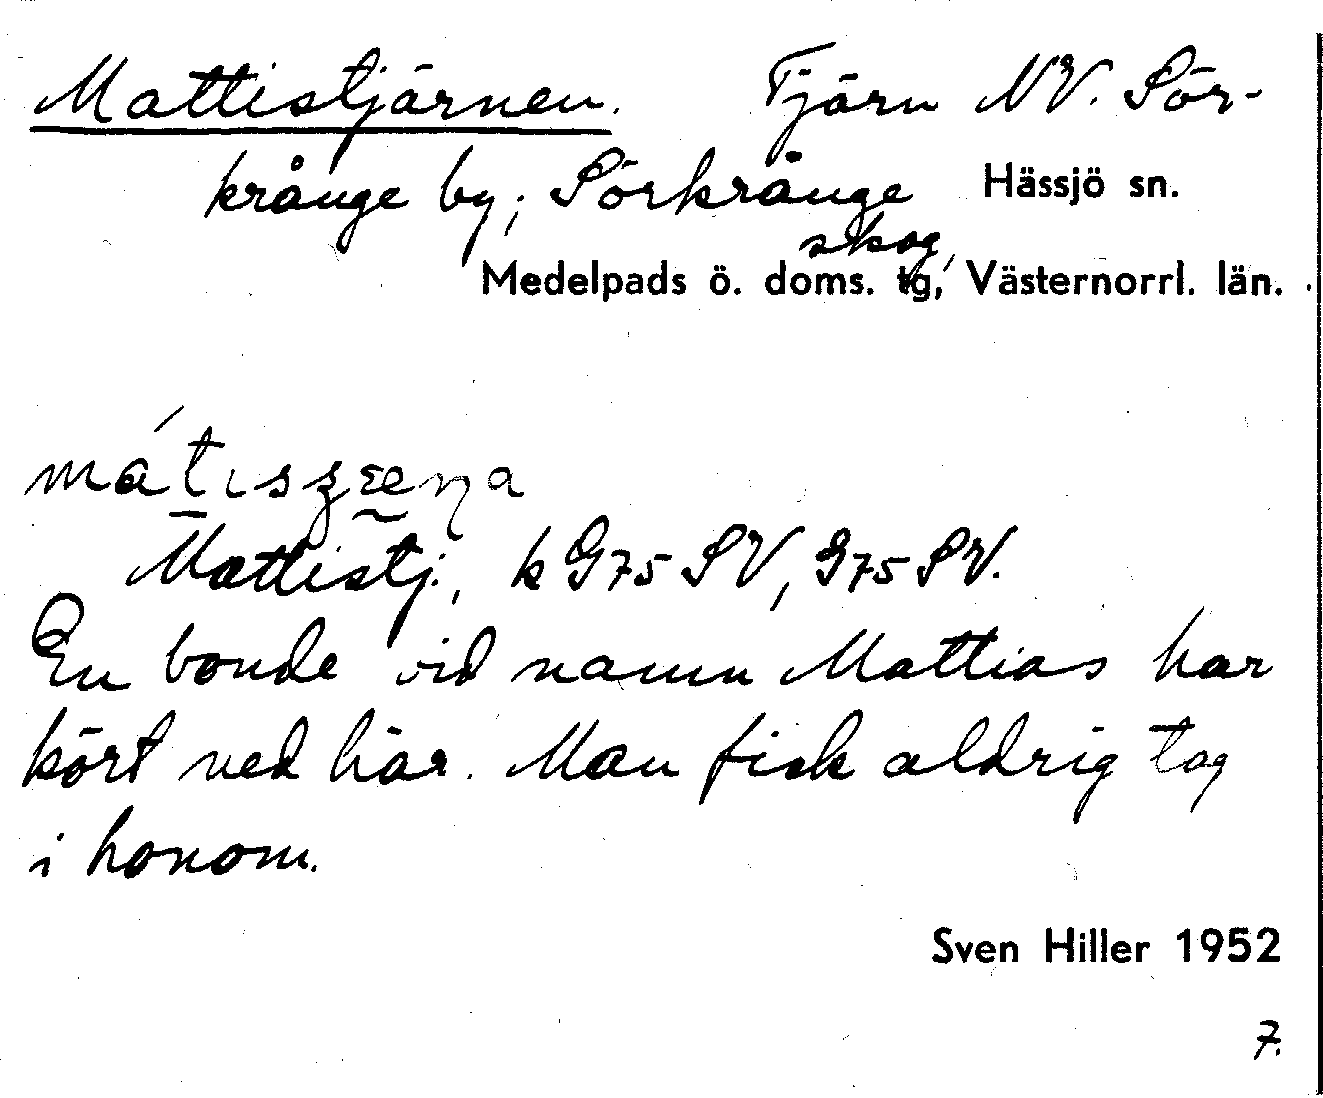 Mattistjärnen. Tjärn NV. Sör-
krånge by; Sörkrånge Hässjö sn.
skog,
Medelpads ö. doms. tg, Västernorrl. län.
Mattistj., k G75 SV, 975 SV.
En bonde vid namn Mattias har
kört ved här. Man fick aldrig tag
i honom.
Sven Hiller 1952
7.